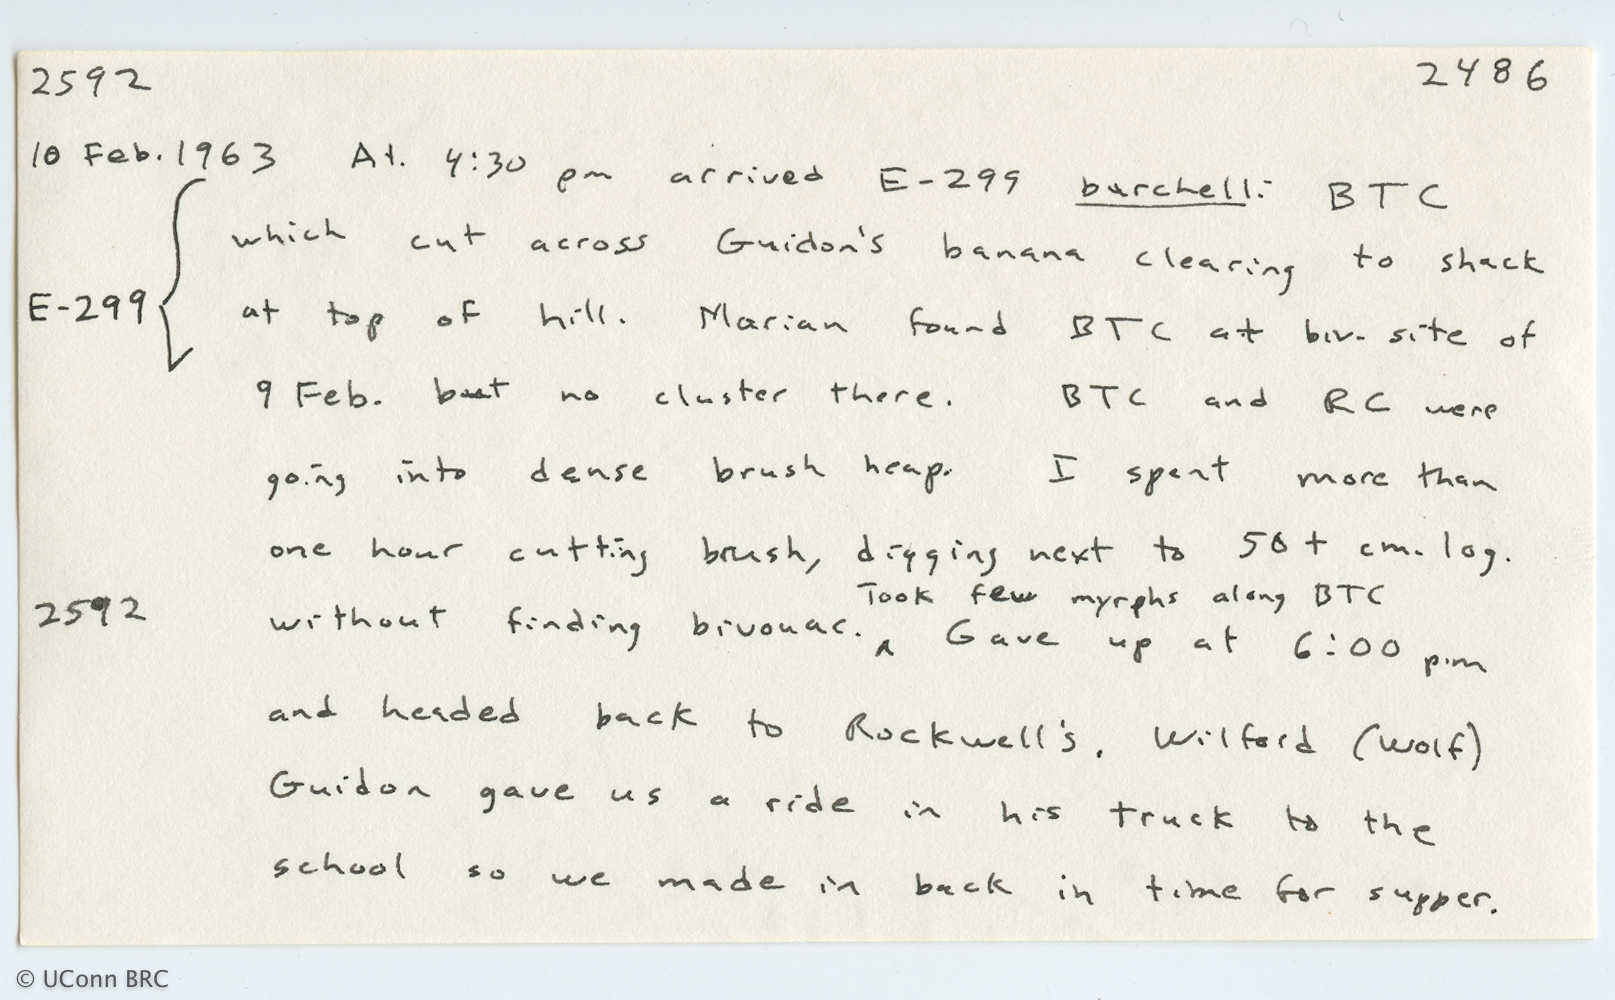 2592 2486
10 Feb. 1963 At. 4:30 pm arrived E-299 burchelli BTC
which cut across Guidon's banana clearing to shack
E-299 at top of hill. Marian found BTC at biv. site of
9 Feb. but no cluster there. BTC and RC were
going into dense brush heap. I spent more than
one hour cutting brush, digging next to 50+ cm. log.
Took few myrphs along BTC
2592 without finding bivouac. ^ Gave up at 6:00 pm
and headed back to Rockwell's. Wilford (Wolf)
Guidon gave us a ride in his truck to the
school so we made in back in time for supper.
© UConn BRC